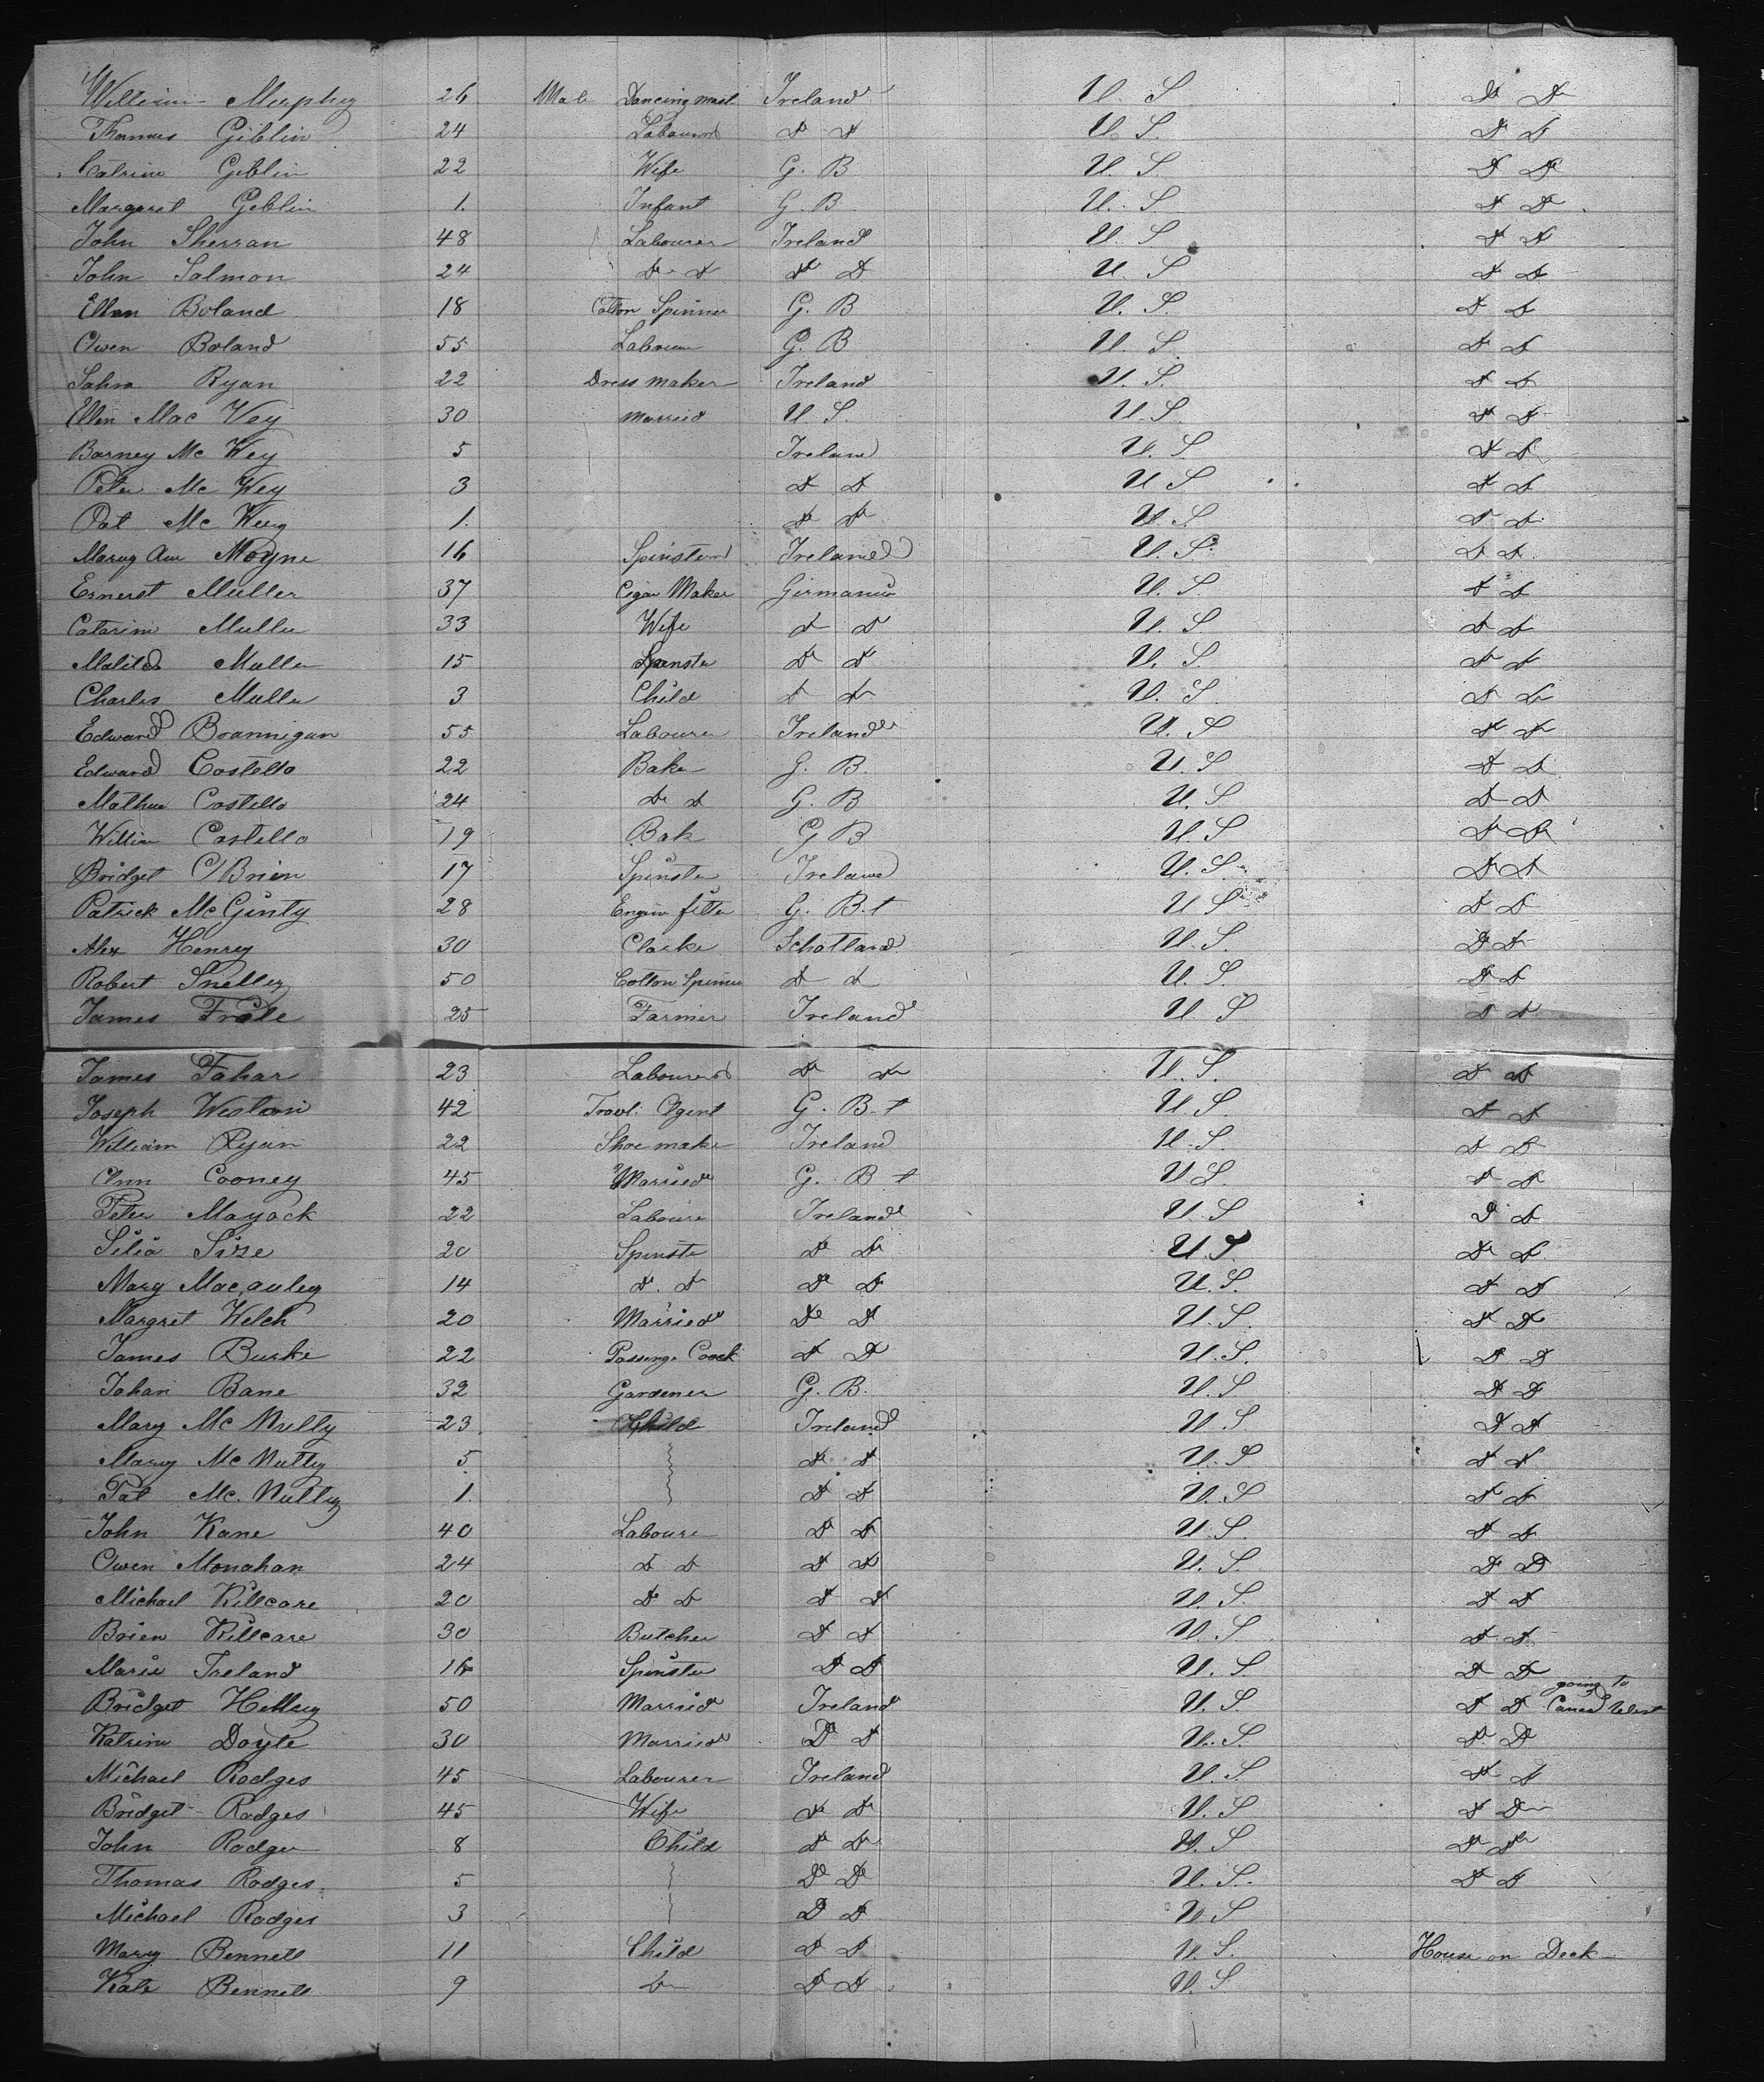 William Murphy 26 Male Dancing mast. Ireland U. S. Do Do
Thomas Giblin 24 Labourer Do Do U. S. Do Do
Catrine Giblin 22 Wife G. B U. S. Do Do
Margaret Giblin 1. Infant G. B U. S. Do Do
John Sherran 48 Labourer Ireland U. S Do Do
John Salmon 24 Do Do Do Do U. S Do Do
Ellen Boland 18 Cotton Spinner G. B U. S. Do Do
Owen Boland 55 Labourer G. B U. S. Do Do
Sahra Ryan 22 Dress maker Ireland U. S. Do Do
Ellen Mac Vey 30 married U. S. U. S. Do Do
Barney Mc Vey 5 Ireland U. S. Do Do
Peter Mc Vey 3 Do Do U S Do Do
Pat Mc Vey 1. Do Do U. S. Do Do
Mary Ann Moyne 16 Spinster Ireland U. S. Do Do
Ernerst Muller 37 Cigar Maker Girmania U. S. Do Do
Catarine Muller 33 Wife Do Do U. S Do Do
Matilda Muller 15 Spinster Do Do U. S. Do Do
Charles Muller 3 Child Do Do U. S Do Do
Edward Brannigan 55 Labourer Ireland U. S Do Do
Edward Costello 22 Baker G. B. U. S Do Do
Mathew Costello 24 Do Do G. B U. S Do Do
William Costello 19 Bak G B U. S Do Do
Bridget O'Brien 17 Spinster Ireland U. S. Do Do
Patrick McGinty 28 Engine fitter G. B.t U S Do Do
Alex Henrey 30 Clarke Schotland U. S. Do Do
Robert Snelley 50 Cotton Spinner Do Do U. S. Do Do
James Frale 25 Farmer Ireland U. S Do Do
James Fahar 23 Labourer Do Do U. S. Do Do
Joseph Weston 42 Travl. Agent G. B.t U S. Do Do
William Ryan 22 Shoe maker Ireland U. S. Do Do
Ann Cooney 45 Married G. B t U S. Do Do
Peter Mayock 22 Labourer Ireland U. S Do Do
Silia Size 20 Spinster Do Do U. S. Do Do
Mary Macauley 14 Do. Do Do Do U. S. Do Do
Margret Welch 20 Married Do Do U. S. Do Do
James Burke 22 Passenge Coock Do Do U. S. Do Do
Johan Bane 32 Gardener G. B. U. S Do Do
Mary Mc Nulty 23 Ireland U. S Do Do
Mary Mc Nulty 5 Do Do U. S Do Do
Pat Mc. Nulty 1. Do Do U. S Do Do
John Kane 40 Labourer Do Do U. S. Do Do
Owen Monahan 24 Do Do Do Do U. S. Do Do
Michael Killcare 20 Do Do Do Do U. S. Do Do
Brien Killcare 30 Butcher Do Do U. S Do Do
Marie Ireland 16 Spinster Do Do U. S. Do Do
Bridget 50 Married Ireland U. S. Do Do going to Canad West
Katrine Doyle 30 Married Do Do U. S. Do Do
Michael Rodges 45 Labourer Ireland U. S. Do Do
Bridget Rodges 45 Wife Do Do U. S Do Do
John Rodger 8 Child Do Do U. S Do Do
Thomas Rodges. 5 Do Do U. S. Do Do
Michael Rodges 3 Do Do U. S
Mary Bennett 11 Child Do Do U. S. House on Deck
Kate Bennett 9 Do Do Do U. S.